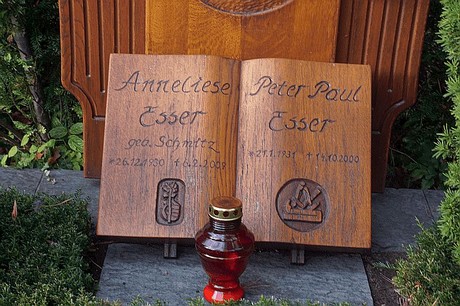 Anneliese
Esser
geb. Schmitz
*26.12.1930 †6.2.2009
Peter Paul
Esser
*29.1.1931 †14.10.2000